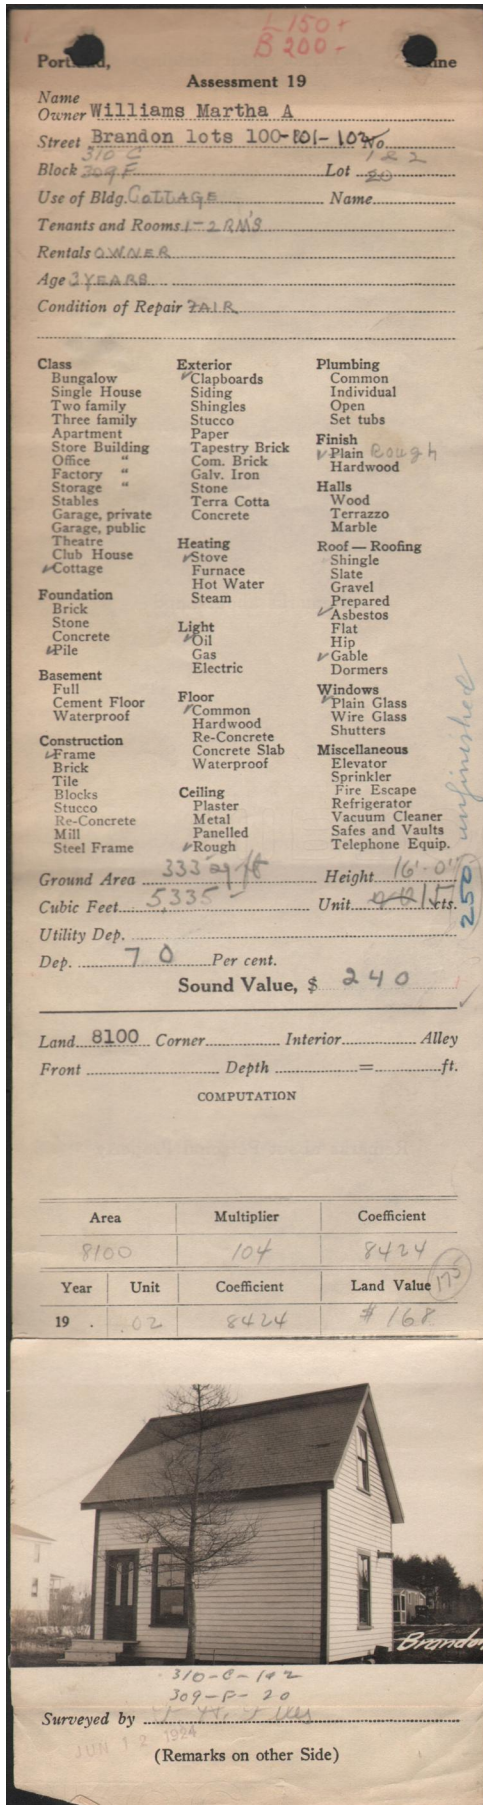 L 150+
B 200-
Portland, Maine
Assessment 19
Name
Owner Williams Martha A
Street Brandon lots 100-101-102 No.
310 C 1 & 2
Block 309 F Lot 20
Use of Bldg. COTTAGE Name
Tenants and Rooms 1-2 RM'S
Rentals OWNER
Age 3 YEARS
Condition of Repair FAIR
Class
Bungalow
Single House
Two family
Three family
Apartment
Store Building
Office "
Factory "
Storage "
Stables
Garage, private
Garage, public
Theatre
Club House
✓Cottage
Foundation
Brick
Stone
Concrete
✓Pile
Basement
Full
Cement Floor
Waterproof
Construction
✓Frame
Brick
Tile
Blocks
Stucco
Re-Concrete
Mill
Steel Frame
Exterior
✓Clapboards
Siding
Shingles
Stucco
Paper
Tapestry Brick
Com. Brick
Galv. Iron
Stone
Terra Cotta
Concrete
Heating
✓Stove
Furnace
Hot Water
Steam
Light
✓Oil
Gas
Electric
Floor
✓Common
Hardwood
Re-Concrete
Concrete Slab
Waterproof
Ceiling
Plaster
Metal
Panelled
✓Rough
Plumbing
Common
Individual
Open
Set tubs
Finish
✓Plain Rough
Hardwood
Halls
Wood
Terrazzo
Marble
Roof — Roofing
Shingle
Slate
Gravel
Prepared
✓Asbestos
Flat
Hip
✓Gable
Dormers
Windows
✓Plain Glass
Wire Glass
Shutters
Miscellaneous
Elevator
Sprinkler
Fire Escape
Refrigerator
Vacuum Cleaner
Safes and Vaults
Telephone Equip.
250 unfinished
Ground Area 333 sq ft Height 16'-0"
Cubic Feet 5,335 Unit 15 cts.
Utility Dep.
Dep. 70 Per cent.
Sound Value, $ 240
Land 8100 Corner Interior Alley
Front Depth = ft.
COMPUTATION
Area Multiplier Coefficient
8100 104 8424
Year Unit Coefficient Land Value 175
19 . .02 8424 $168
Brandon
310-C-1&2
309-F-20
Surveyed by
JUN 12 1924
(Remarks on other Side)